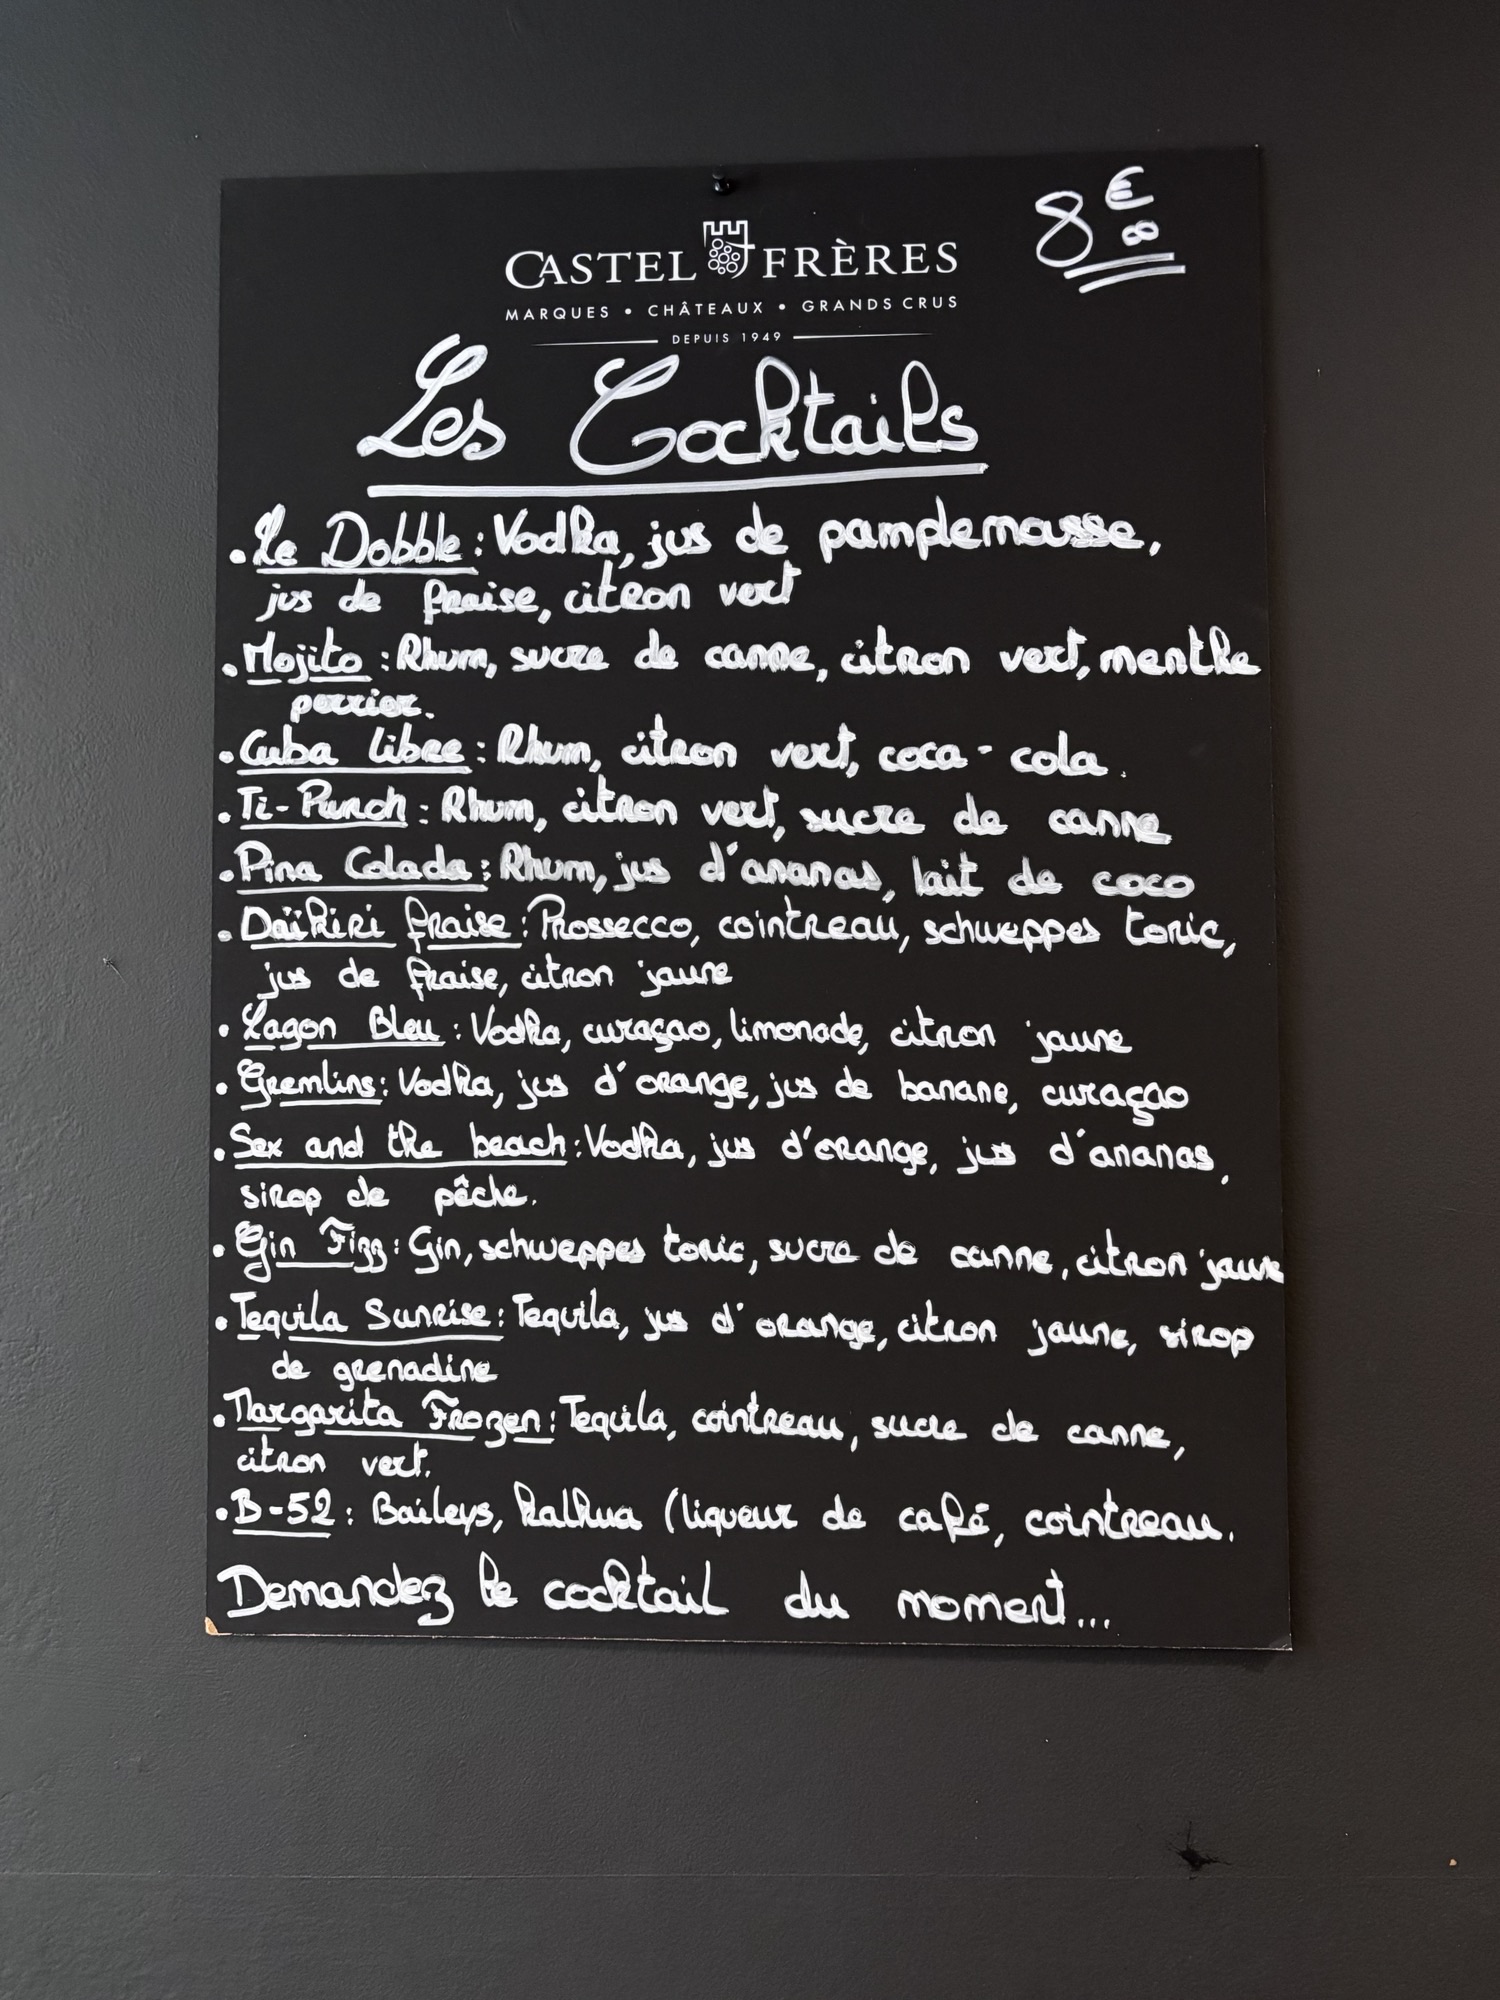 8€8
CASTEL FRÈRES
MARQUES • CHÂTEAUX • GRANDS CRUS
DEPUIS 1949
Les Cocktails
• Le Dobble : Vodka, jus de pamplemousse,
jus de fraise, citron vert
• Mojito : Rhum, sucre de canne, citron vert, menthe
perrier.
• Cuba libre : Rhum, citron vert, coca-cola.
• Ti-Punch : Rhum, citron vert, sucre de canne
• Pina Colada : Rhum, jus d'ananas, lait de coco
• Daïkiri fraise : Prossecco, cointreau, schweppes tonic,
jus de fraise, citron jaune
• Lagon Bleu : Vodka, curaçao, limonade, citron jaune
• Gremlins : Vodka, jus d'orange, jus de banane, curaçao
• Sex and the beach : Vodka, jus d'orange, jus d'ananas,
sirop de pêche.
• Gin Fizz : Gin, schweppes tonic, sucre de canne, citron jaune
• Tequila Sunrise : Tequila, jus d'orange, citron jaune, sirop
de grenadine
• Margarita Frozen : Tequila, cointreau, sucre de canne,
citron vert.
• B-52 : Baileys, kalhua (liqueur de café, cointreau.
Demandez le cocktail du moment...